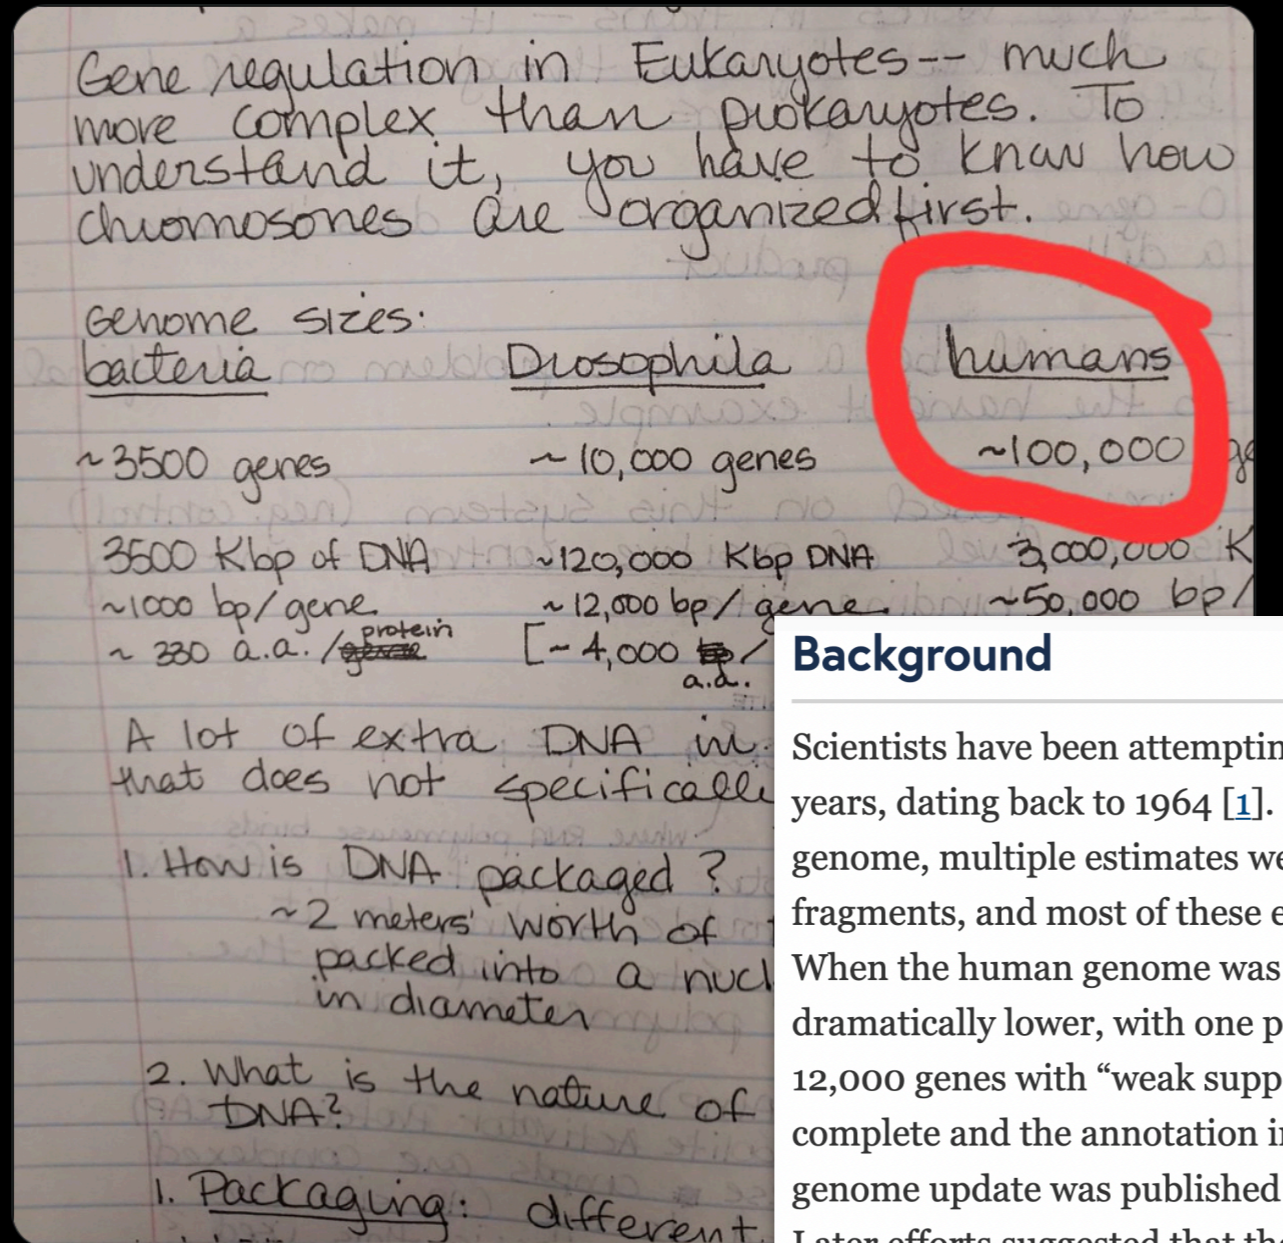 Gene regulation in Eukaryotes-- much
more complex than prokaryotes. To
understand it, you have to know how
chromosones are organized first.
Genome sizes:
bacteria Drosophila humans
~3500 genes ~10,000 genes ~100,000 ge
3500 Kbp of DNA ~120,000 Kbp DNA 3,000,000 K
~1000 bp/gene ~12,000 bp/gene ~50,000 bp/
~ 330 a.a./protein [~4,000 a.a. /
A lot of extra DNA in
that does not specifically
1. How is DNA packaged?
~2 meters' worth of
packed into a nucl
in diameter
2. What is the nature of
DNA?
1. Packaging: different
Background
Scientists have been attemptin
years, dating back to 1964 [1].
genome, multiple estimates we
fragments, and most of these e
When the human genome was
dramatically lower, with one p
12,000 genes with “weak supp
complete and the annotation in
genome update was published
Later efforts suggested that the